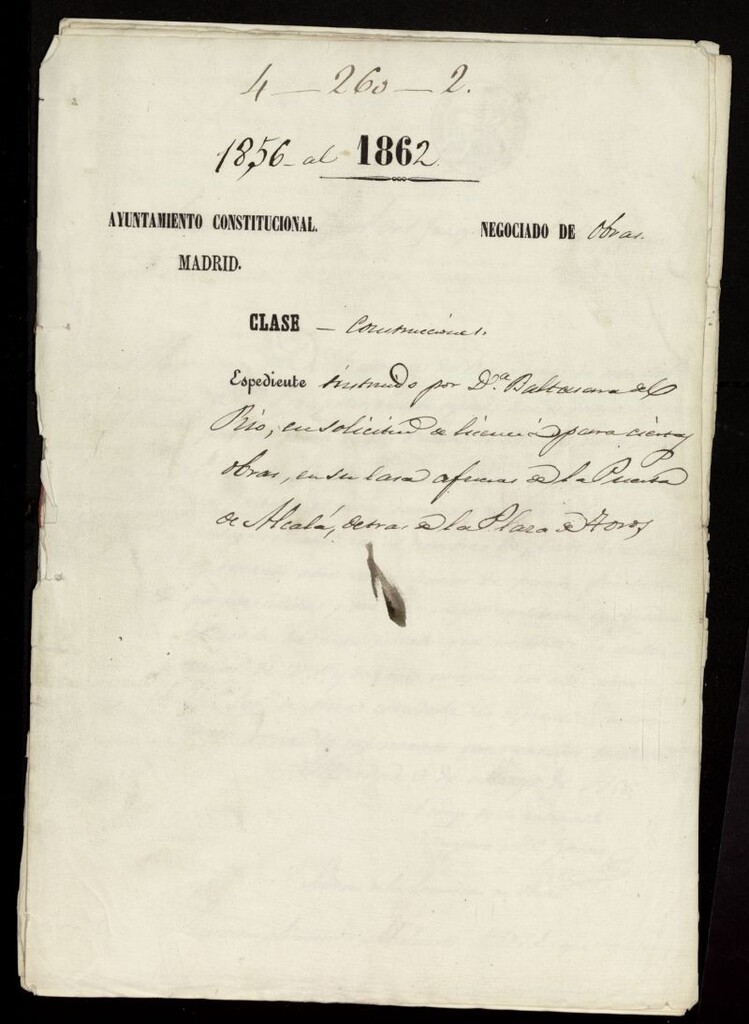 4 — 260 — 2.
1856 al 1862.
AYUNTAMIENTO CONSTITUCIONAL.
MADRID.
NEGOCIADO DE Obras.
CLASE — Construcciones.
Espediente instruido por D.ª Baltasara del
Rio, en solicitud de licencia para ciertas
obras, en su casa afueras de la Puerta
de Alcalá, detras de la Plaza de Toros